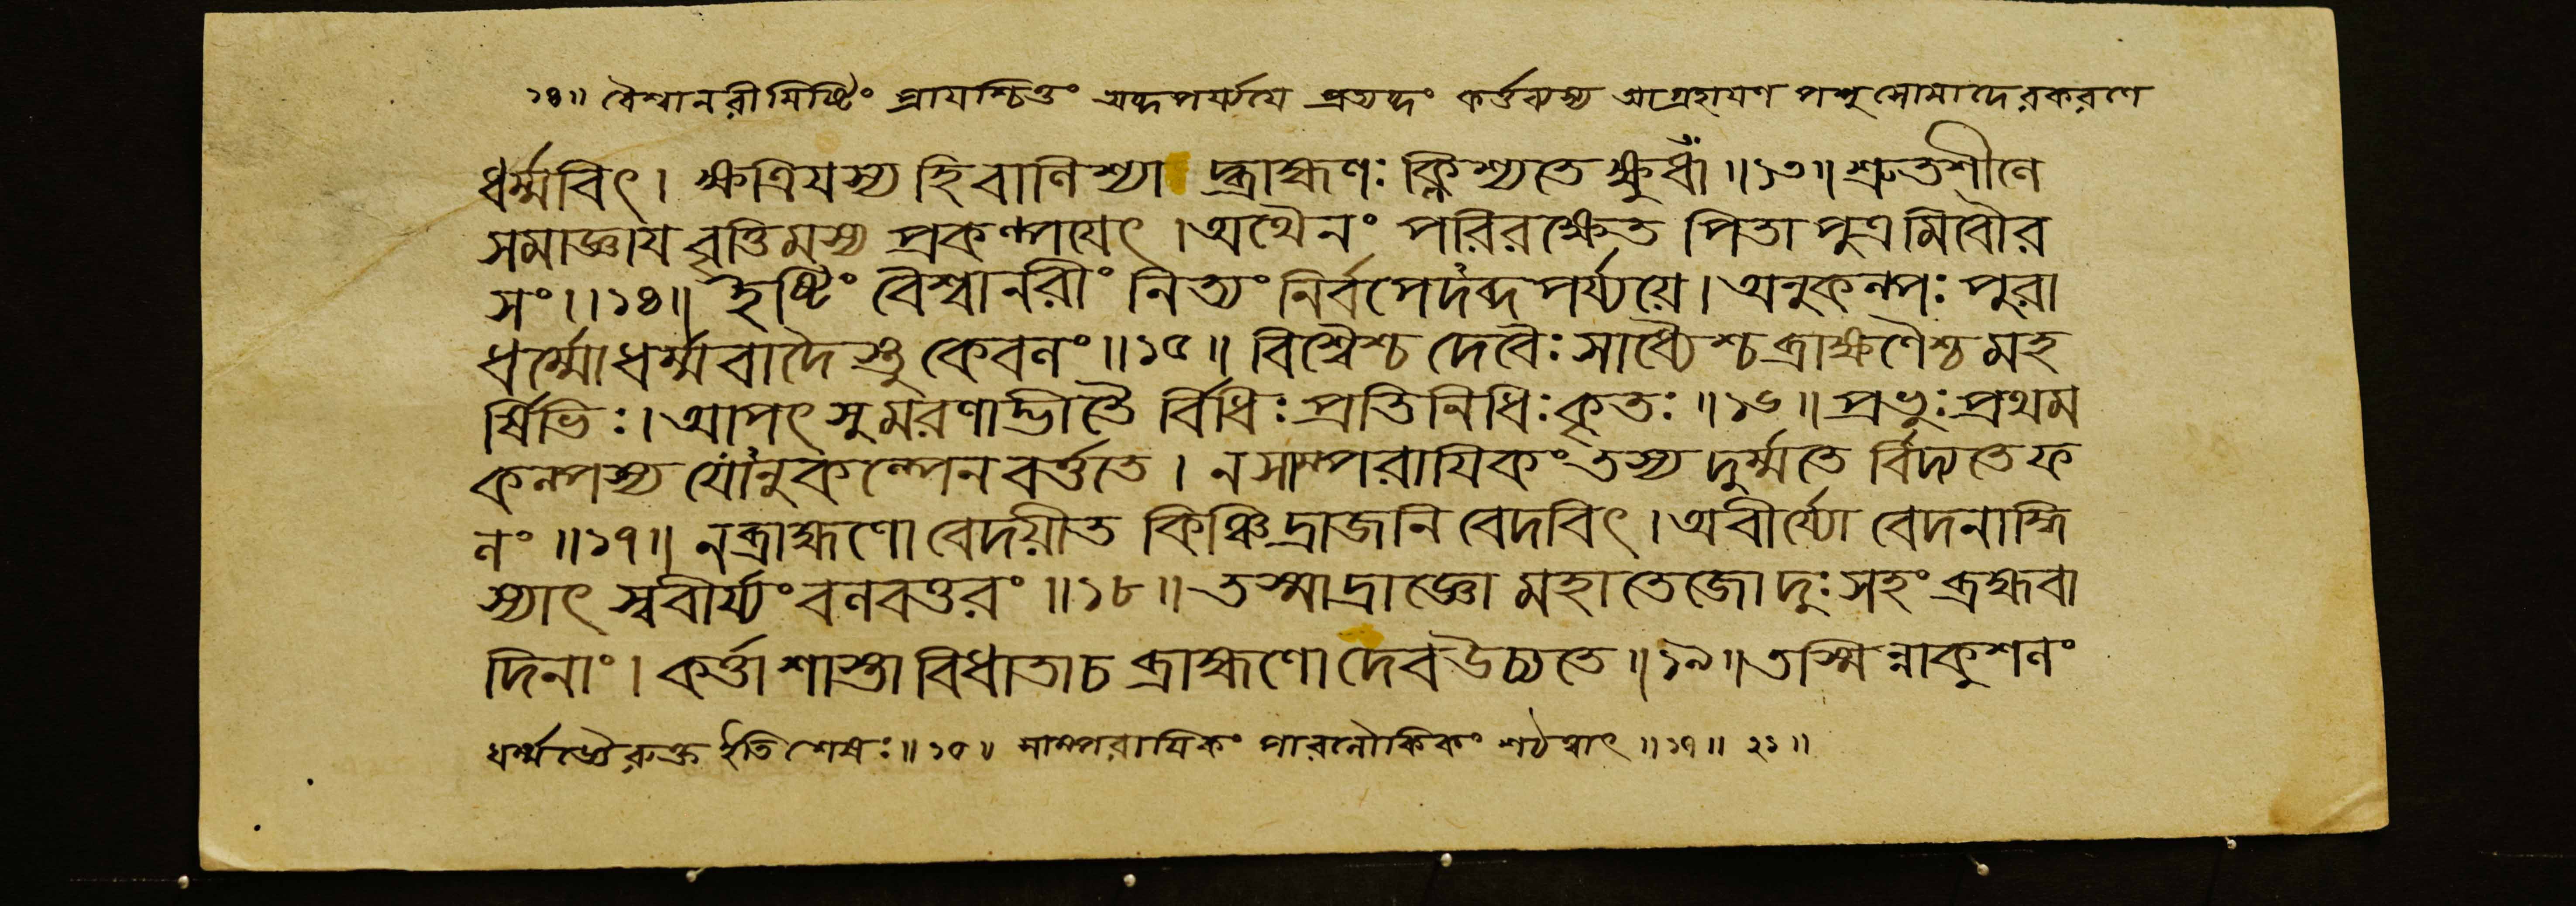 ১৪॥ বৈশ্বানরীমিষ্টিং প্রাযশ্চিত্তং অব্দপর্য্যযে প্রত্যব্দং কর্ত্তব্যস্য আগ্রহাযণ পশুসোমাদেরকরণে
ধর্ম্মবিৎ। ক্ষত্রিযস্য হি বালিশ্যা দ্ব্রাহ্মণঃ ক্লিশ্যতে ক্ষুধা ॥১৩॥ শ্রুতশীলে
সমাজ্ঞায বৃত্তিমস্য প্রকল্পযেৎ। অথৈনং পরিরক্ষেত পিতা পুত্রমিবৌর
সং॥১৪॥ ইষ্টিং বৈশ্বানরীং নিত্যং নির্বপেদব্দপর্য্যয়ে। অনুকল্পঃ পুরা
ধর্ম্মো ধর্ম্মবাদৈস্তু কেবলং॥১৫॥ বিশ্বৈশ্চ দেবৈঃ সাধ্যৈশ্চ ব্রাহ্মণৈশ্চ মহ
র্ষিভিঃ। আপৎসু মরণাদ্ভীতৈ র্বিধিঃ প্রতিনিধিঃ কৃতঃ॥১৬॥ প্রভুঃ প্রথম
কল্পস্য যোনুকল্পেন বর্ত্ততে। ন সাম্পরাযিকং তস্য দুর্ম্মতে র্বিদ্যতে ফ
লং॥১৭॥ ন ব্রাহ্মণো বেদয়ীত কিঞ্চিদ্রাজনি বেদবিৎ। অবীর্য্যো বেদনাদ্বি
স্যাৎ স্ববীর্য্যং বলবত্তরং॥১৮॥ তস্মাদ্রাজ্ঞো মহাতেজো দুঃসহং ব্রহ্মবা
দিনাং। কর্ত্তা শাস্তা বিধাতা চ ব্রাহ্মণো দেব উচ্যতে॥১৯॥ তস্মিন্নাকুশলং
ইতি শেষঃ॥১৫॥ সাম্পরাযিকং পারলৌকিকং শঠত্বাৎ॥১৭॥ ২১॥